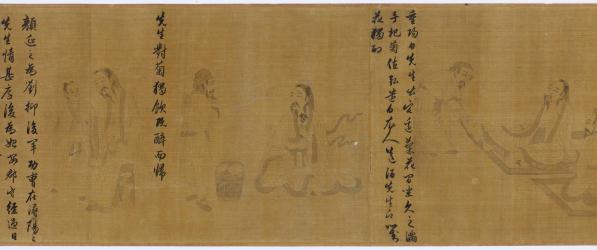 重陽日先生出宅邊菊花間坐久之滿
手把菊值弘遣白衣人送酒先生即對
花獨酌
先生對菊獨飲既醉而歸
顏延之為劉柳後軍功曹在潯陽與
先生情甚厚後為始安郡守經過日